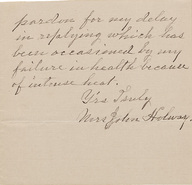 pardon for my delay
in replying which has
been occasioned by my
failure in health because
of intense heat.
Yrs Truly
Mrs John Holway.